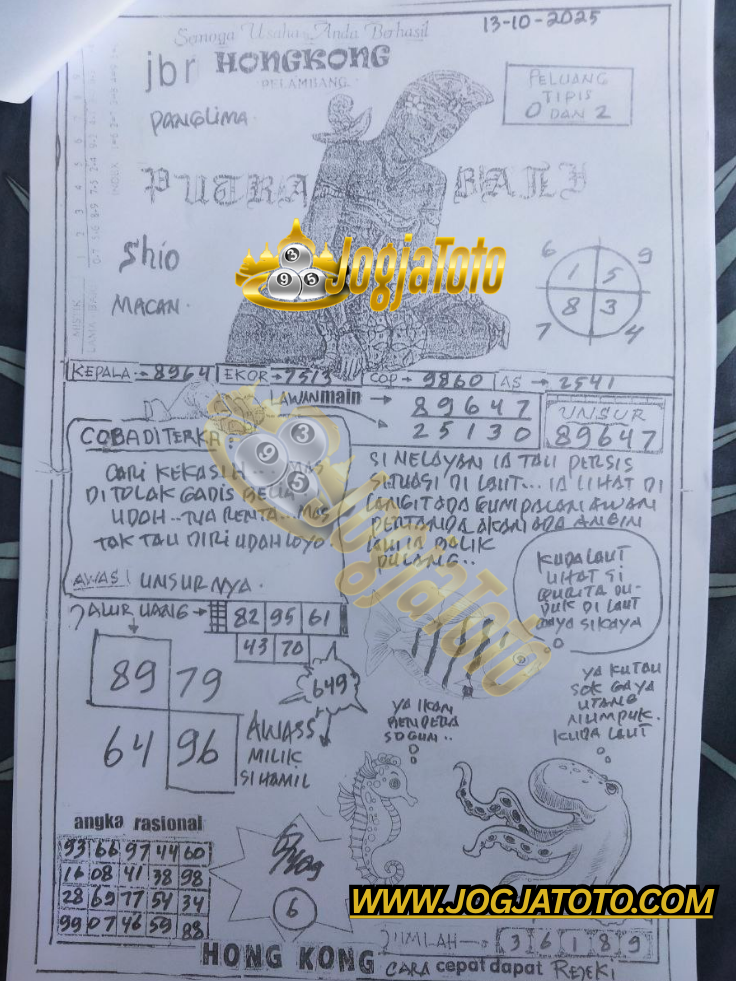 Semoga Usaha Anda Berhasil
13-10-2025
jbr HONGKONG
PELAMBANG
PELUANG
TIPIS
0 DAN 2
PANGLIMA
PUTRA BALI
Shio
MACAN
JogjaToto
6 9
1 5
8 3
7 4
KEPALA → 8964 EKOR → 7513 COP → 9860 AS → 2541
AWAN main → 89647
25130
UNSUR
89647
COBA DITERKA :
CARI KEKASIH .. MAS
DITOLAK GADIS BELIA
UDAH .. TUA RENTA ... MAS
TAK TAU DIRI UDAH LOYO
SI NELAYAN IA TAU PERSIS
SITUASI DI LAUT ... IA LIHAT DI
LANGIT ADA GUMPALAN AWAN
PERTANDA AKAN ADA ANGIN
LALU IA BALIK
PULANG ..
KUDA LAUT
LIHAT SI
GURITA DU-
DUK DI LAUT
GAYA SI KAYA
AWAS! UNSURNYA .
JALUR UANG → 82 95 61
43 70
JogjaToto
89 79
64 96
649
AWASS
MILIK
SI HAMIL
YA IKAN
BENDERA
SOGUN ..
YA KUTAU
SOK GAYA
UTANG
NUMPUK .
KUDA LAUT
angka rasional
93 66 97 44 60
16 08 41 38 98
28 69 77 54 34
99 07 46 59 88
6
WWW.JOGJATOTO.COM
JUMLAH → 3 6 1 8 9
HONG KONG CARA cepat dapat REJEKI